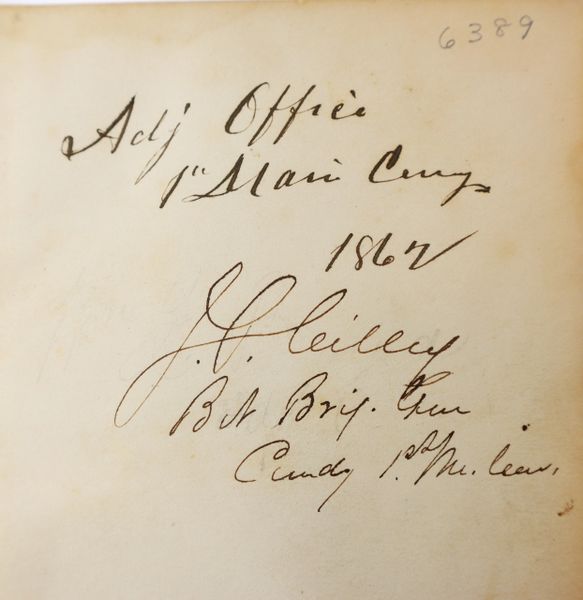 6389
Adj Office
1st Main Cavy
1862
J. P. Cilley
Bvt Brig. Gen
Comdg 1st Me. Cav.